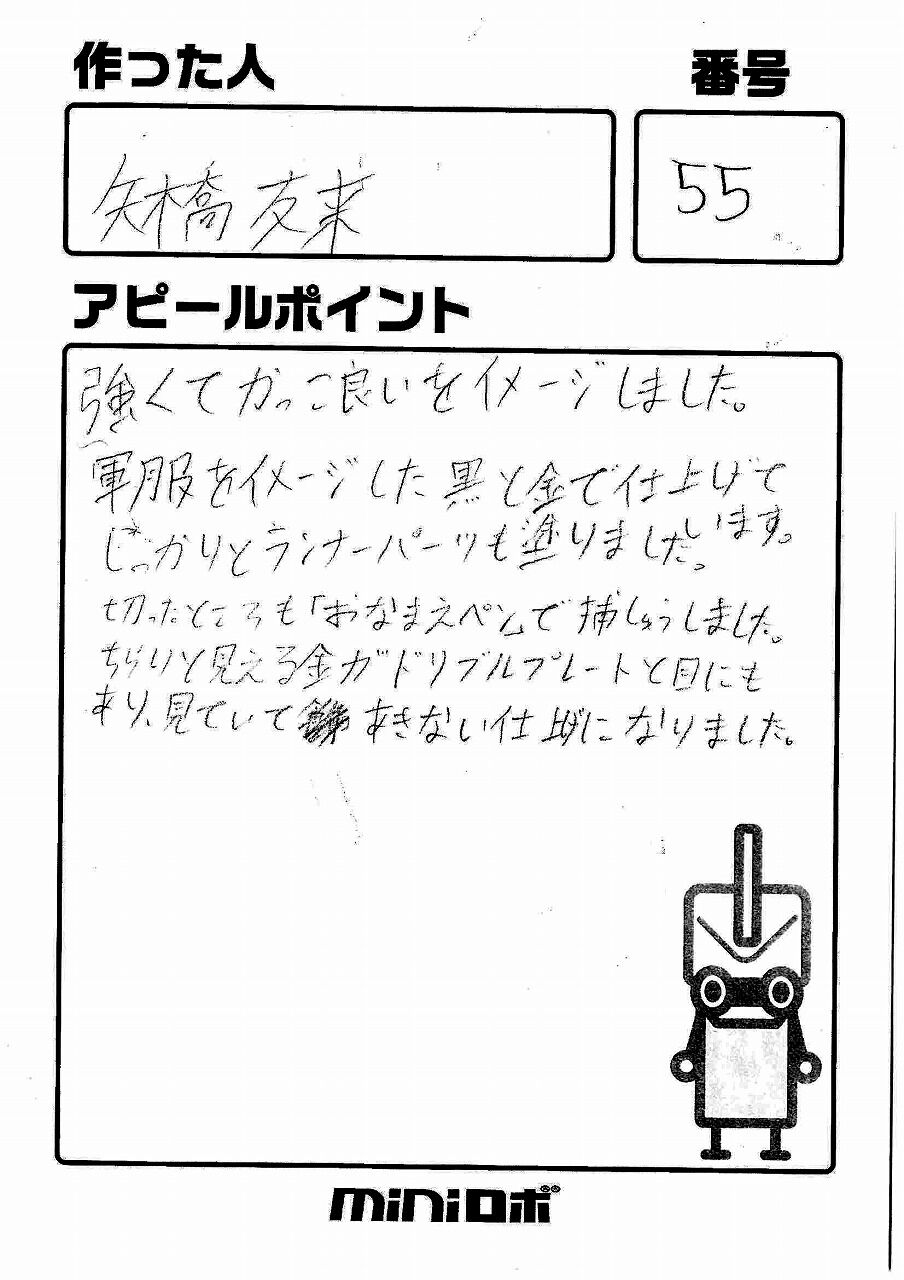 作った人
番号
矢橋 友来
55
アピールポイント
強くてかっこ良いをイメージしました。
軍服をイメージした黒と金で仕上げて
います。
じっかりとランナーパーツも塗りました。
切ったところも「おなまえペン」で捕しゅうしました。
ちらりと見える金がドリブルプレートと目にも
あり、見ていて あきない仕上げになりました。
miniロボ